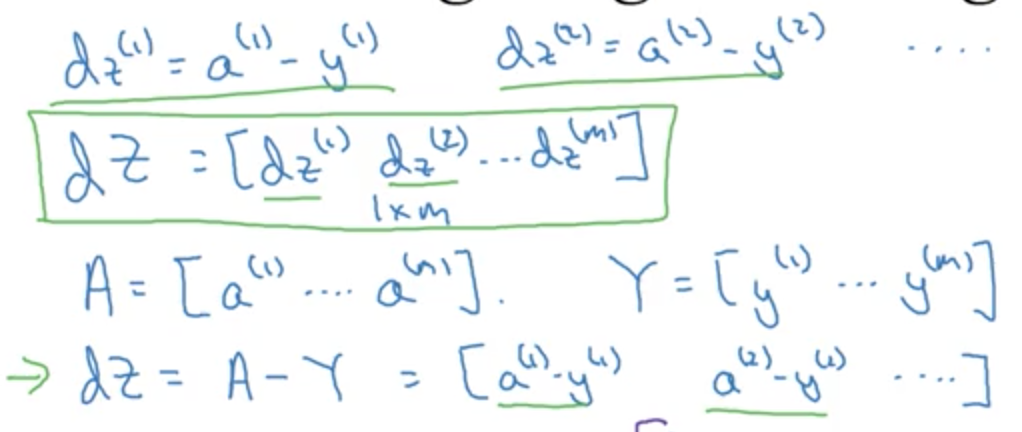 dz⁽¹⁾ = a⁽¹⁾ - y⁽¹⁾ dz⁽²⁾ = a⁽²⁾ - y⁽²⁾ ....
dZ = [dz⁽¹⁾ dz⁽²⁾ ... dz⁽ᵐ⁾]
1×m
A = [a⁽¹⁾ .... a⁽ᵐ⁾]. Y = [y⁽¹⁾ ... y⁽ᵐ⁾]
→ dZ = A - Y = [a⁽¹⁾-y⁽¹⁾ a⁽²⁾-y⁽²⁾ ....]